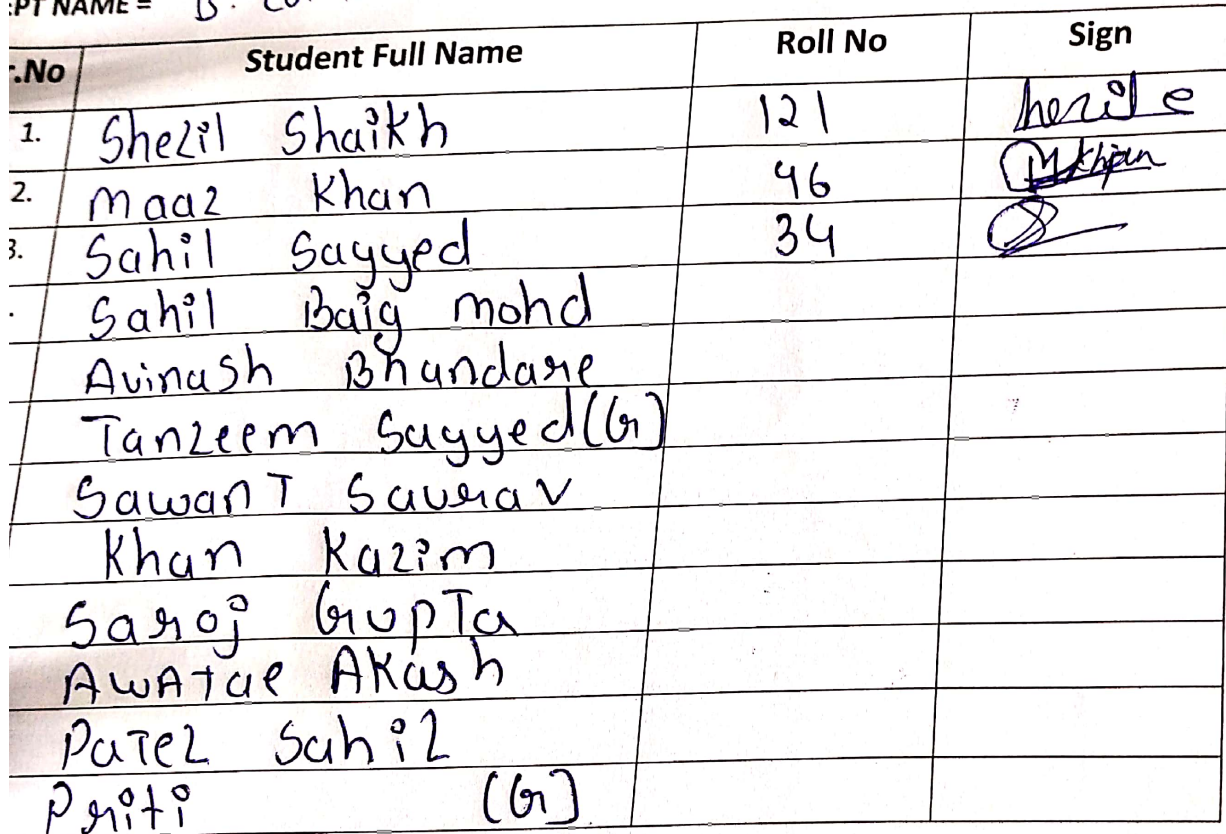 PT NAME = B. Co
.No Student Full Name Roll No Sign
1. Shezil Shaikh 121 herile
2. maaz Khan 46
3. Sahil Sayyed 34
Sahil Baig mohd
Avinash Bhandare
Tanzeem Sayyed (G)
SawanT Saurav
Khan Kazim
Saroj GupTa
AwATae AKash
PaTel Sahil
Priti (G)